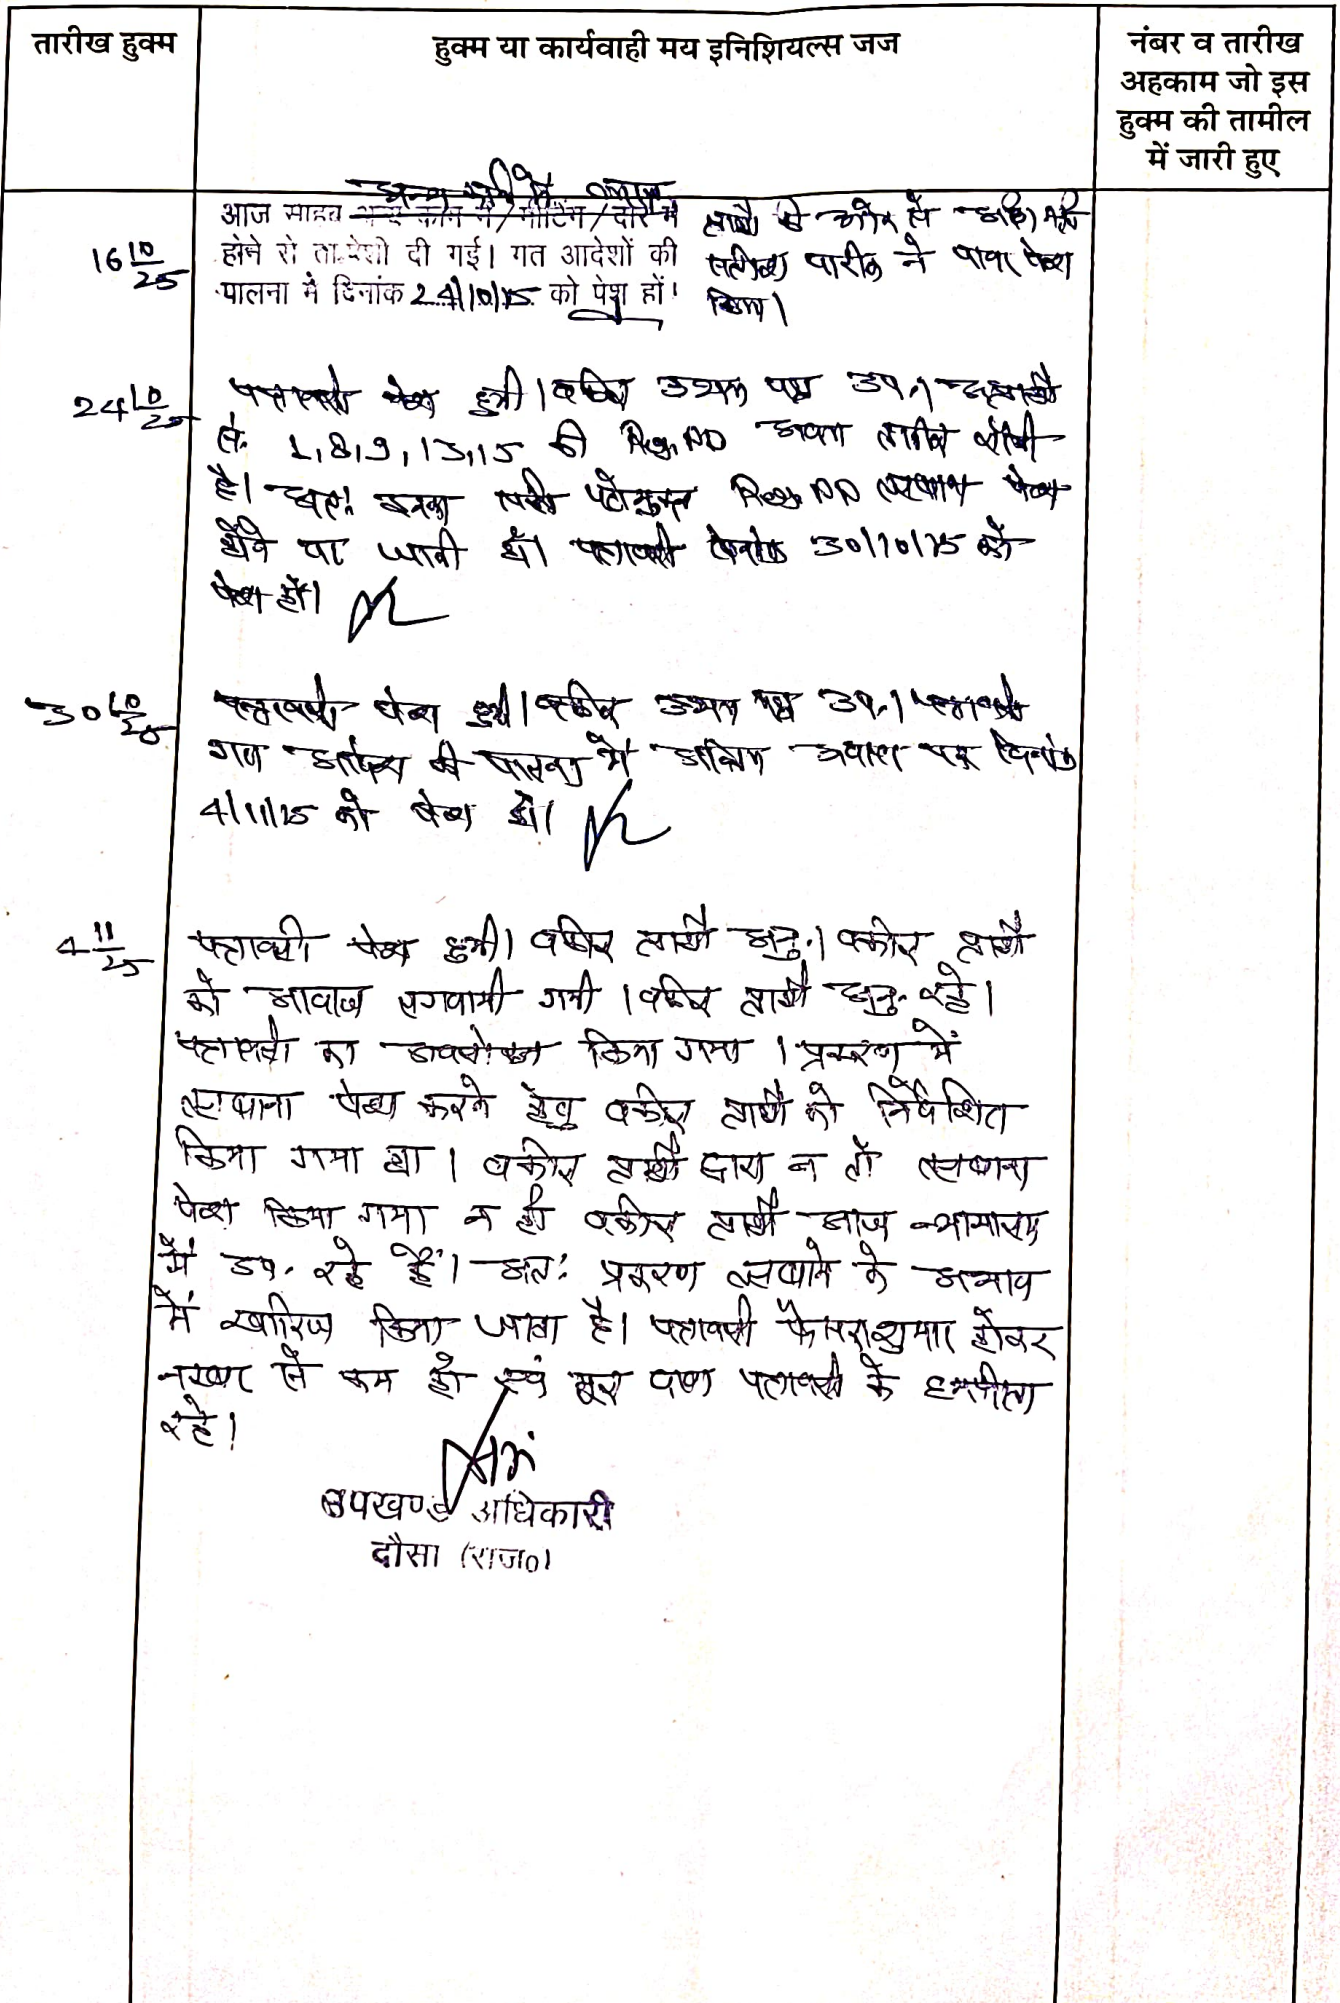 तारीख हुक्म
हुक्म या कार्यवाही मय इनिशियल्स जज
नंबर व तारीख
अहकाम जो इस
हुक्म की तामील
में जारी हुए
16 10/25
आज साहब अन्य काम में/मीटिंग/दौरे में
होने से ता.पेशी दी गई। गत आदेशों की
पालना में दिनांक 24/10/25 को पेश हों।
प्रार्थी की ओर से
पारीक ने पावर पेश
किया।
24 10/25
पत्रावली पेश हुयी। वकील उभय पक्ष उप.। अप्रार्थी
सं. 1, 8, 9, 13, 15 की Reg. AD
है। अतः इनका Reg. AD तलबाना पेश
होने पर जारी हो। पत्रावली दिनांक 30/10/25 को
पेश हो।
30 10/25
पत्रावली पेश हुयी। वकील उभय पक्ष उप.। पत्रावली
गत आदेश की पालना में अन्तिम अवसर पर दिनांक
4/11/25 को पेश हो।
4 11/25
पत्रावली पेश हुयी। वकील प्रार्थी अनु.। वकील प्रार्थी
को आवाज लगवायी गयी। वकील प्रार्थी अनु. रहे।
पत्रावली का अवलोकन किया गया। प्रकरण में
तलबाना पेश करने हेतु वकील प्रार्थी को निर्देशित
किया गया था। वकील प्रार्थी द्वारा न तो तलबाना
पेश किया गया न ही वकील प्रार्थी आज न्यायालय
में उप. रहे हैं। अतः प्रकरण तलबाने के अभाव
में खारिज किया जाता है। पत्रावली फैसलशुमार होकर
नम्बर से कम हो एवं मूल वाद पत्रावली के हमफीता
रहे।
उपखण्ड अधिकारी
दौसा (राज०)